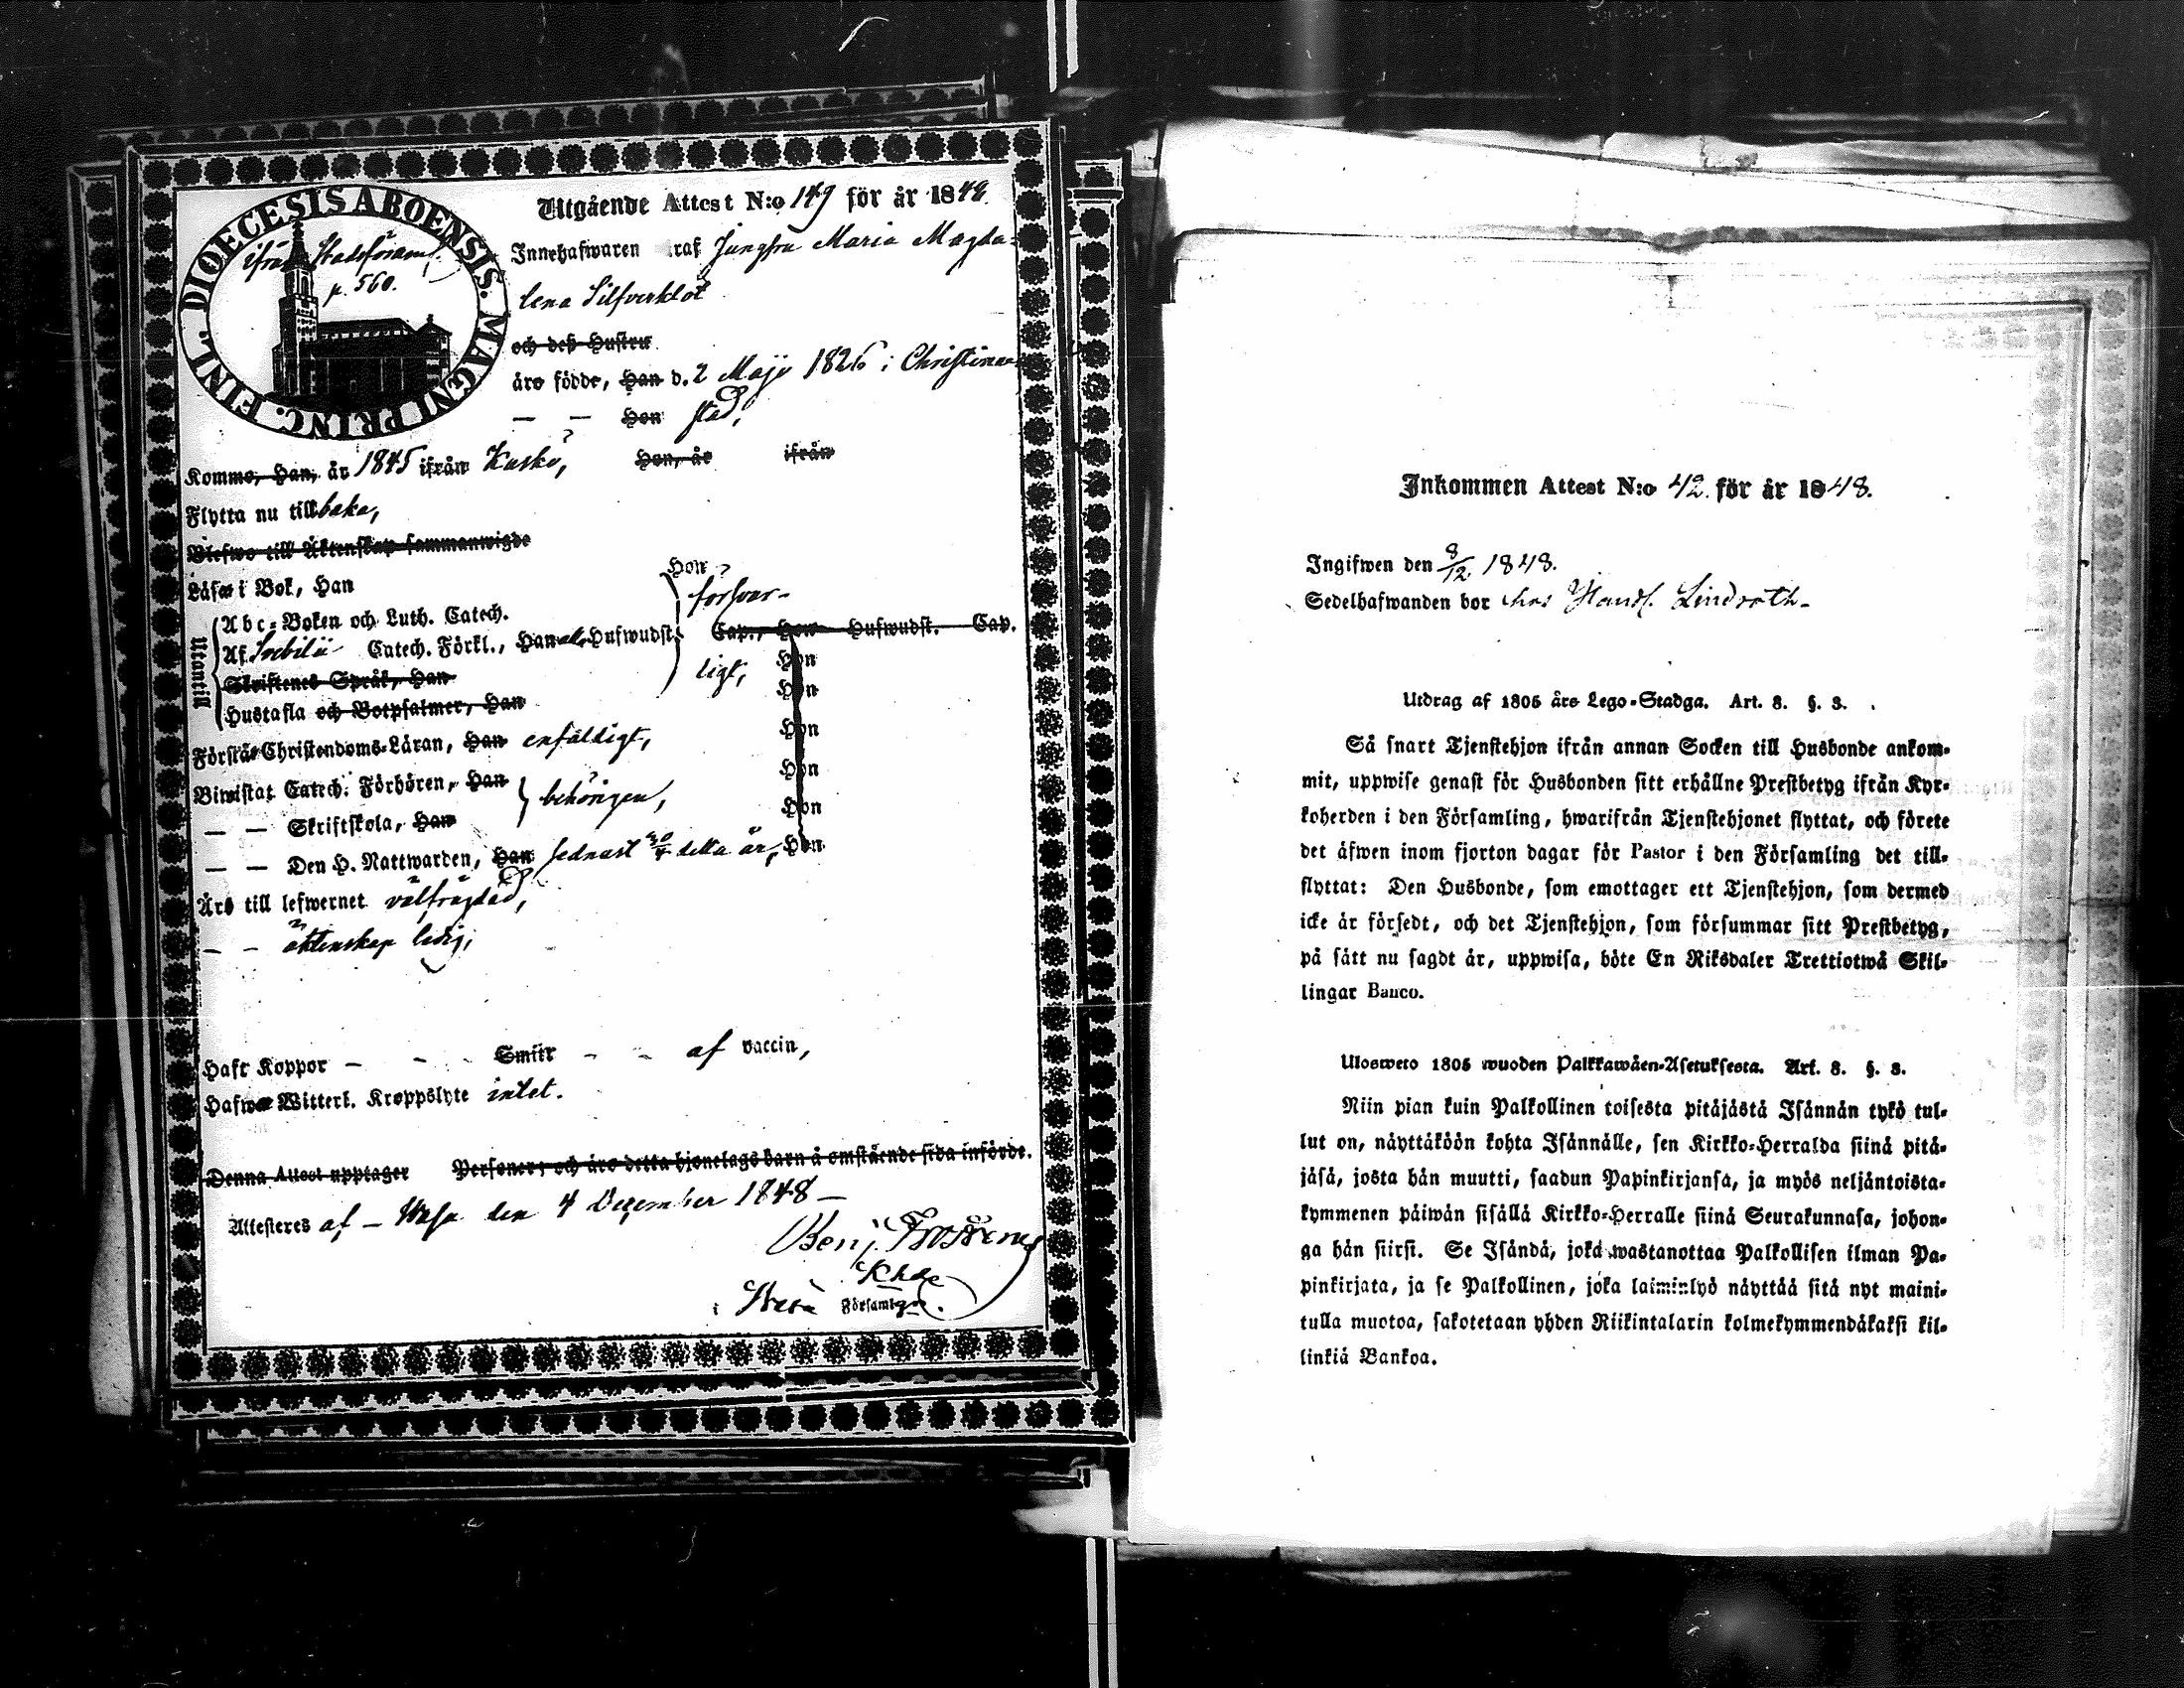 DIOECESIS ABOENSIS. MAGNI PRINC. FINL.
ifrån Stadsförsaml.
p. 560.
Utgående Attest N:o 149 för år 1848
Innehafwaren raf Jungfru Maria Magda-
lena Silfverklot
och deß Hustru
äro födde, Han d. 2 Maji 1826 i Christine
— — Hon stad,
Komme, Han, år 1845 ifrån Kaskö, Hon, år ifrån
Flytta nu tillbaka,
Blefwo till Äktenskap sammanwigde
Läse i Bok, Han Hon
Utantill
Abc-Boken och Luth. Catech. försvar-
Af Svebilii Catech. Förkl., Han Hufwudst. Cap., Hon Hufwudst. Cap.
Skriftenes Språk, Han ligt, Hon
Hustafla och Botpsalmer, Han Hon
Förstå Christendoms-Läran, Han enfaldigt, Hon
Biwistat Catech. Förhören, Han Hon
— — Skriftskola, Han behörigen, Hon
— — Den H. Nattwarden, Han sednast detta år, Hon
Äro till lefwernet välfrägdad,
— — äktenskap ledig,
Haft Koppor — — - Smitt - - af vaccin,
Hafwa Witterl. Kroppslyte intet.
Denna Attest upptager Personer; och äro detta hjonelags barn å omstående sida införde.
Attesteres af — Wasa den 4 December 1848 —
Benj. Frosterus
Khde
i Wasa Församlgr.
Inkommen Attest N:o 42. för år 1848.
Ingifwen den 8/12 1848.
Sedelhafwanden bor hos Handl. Lindroth-
Utdrag af 1805 års Lego-Stadga. Art. 8. §. 3.
Så snart Tjenstehjon ifrån annan Socken till Husbonde ankom-
mit, uppwise genast för Husbonden sitt erhållne Prestbetyg ifrån Kyr-
koherden i den Församling, hwarifrån Tjenstehjonet flyttat, och förete
det äfwen inom fjorton dagar för Pastor i den Församling det till-
flyttat: Den Husbonde, som emottager ett Tjenstehjon, som dermed
icke är försedt, och det Tjenstehjon, som försummar sitt Prestbetyg,
på sätt nu sagdt är, uppwisa, böte En Riksdaler Trettiotwå Skil-
lingar Banco.
Ulosweto 1805 wuoden Palkkawäen-Asetuksesta. Art. 8. §. 3.
Niin pian kuin Palkollinen toisesta pitäjästä Isännän tykö tul-
lut on, näyttäköön kohta Isännälle, sen Kirkko-Herralda siinä pitä-
jäsä, josta hän muutti, saadun Papinkirjansa, ja myös neljäntoista-
kymmenen päiwän sisällä Kirkko-Herralle siinä Seurakunnasa, johon-
ga hän siirsi. Se Isändä, joka wastanottaa Palkollisen ilman Pa-
pinkirjata, ja se Palkollinen, joka laiminlyö näyttää sitä nyt maini-
tulla muotoa, sakotetaan yhden Riikintalarin kolmekymmendäkaksi kil-
linkiä Bankoa.